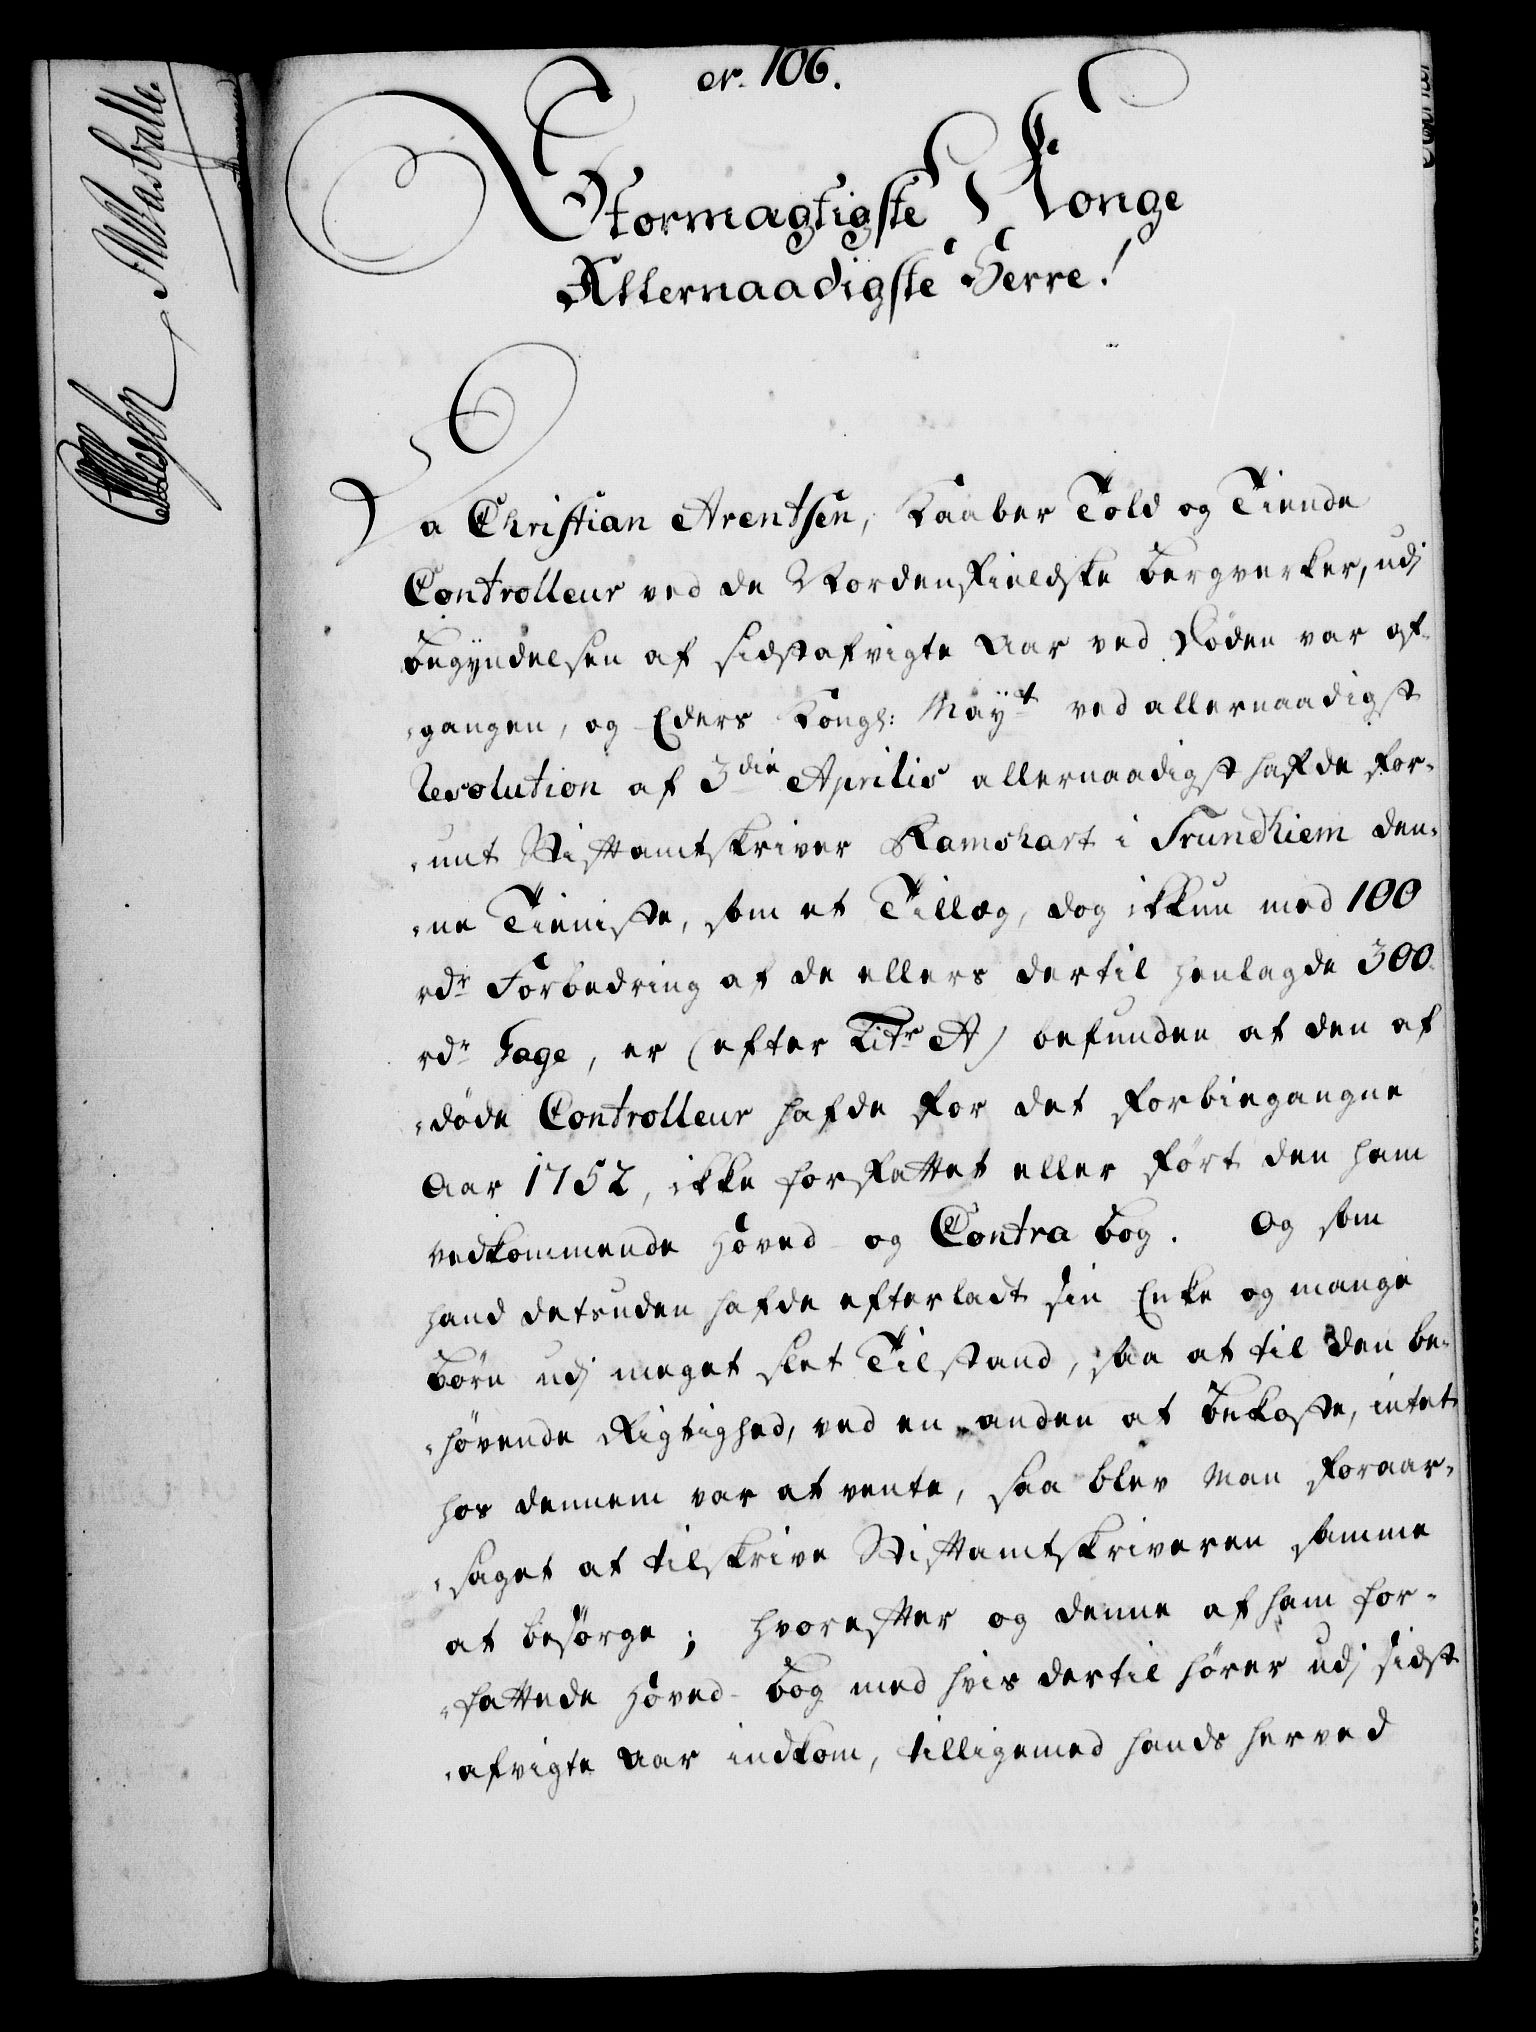 No. 106.
Stormagtigste Konge
Allernaadigste Herre!
Da Christian Arentsen, Kaaber Told og Tiende
Controlleur ved de Nordenfieldske Bergverker, udj
Begyndelsen af sidstafvigte Aar ved Døden var af-
gangen, og Eders Kongl: Mayt ved allernaadigst
Resolution af 3die Aprilis allernaadigst hafde for-
unt Stiftamtskriver Ramshart i Trundhiem den-
ne Tieniste, som et Tillæg, dog ikkun med 100
rdr Forbedring af de ellers dertil henlagde 300
rdr Gage, er (efter Litr A) befunden at den af
døde Controlleur hafde for det forbiegangne
Aar 1752, ikke forfattet eller ført den ham
vedkommende Hoved- og Contra Bog. Og som
hand desuden hafde efterladt sin Enke og mange
Børn udj meget slet Tilstand, saa at til den be-
hørende Rigtighed, ved en anden at bekoste, intet
hos dennem var at vente, saa blev man foraar-
saget at tilskrive Stiftamtskriveren samme
at besørge; hvorefter og denne af ham for-
fattede Hoved-Bog med hvis dertil hører udj sidst
afvigte Aar indkom, tilligemed hands herved